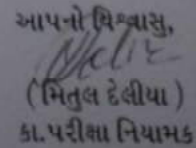 આપનો વિશ્વાસુ,
(મિતુલ દેલીયા)
કા.પરીક્ષા નિયામક